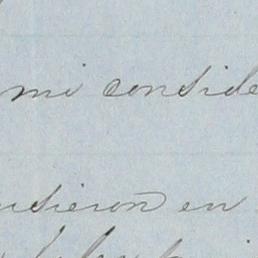 mi conside
usieron en